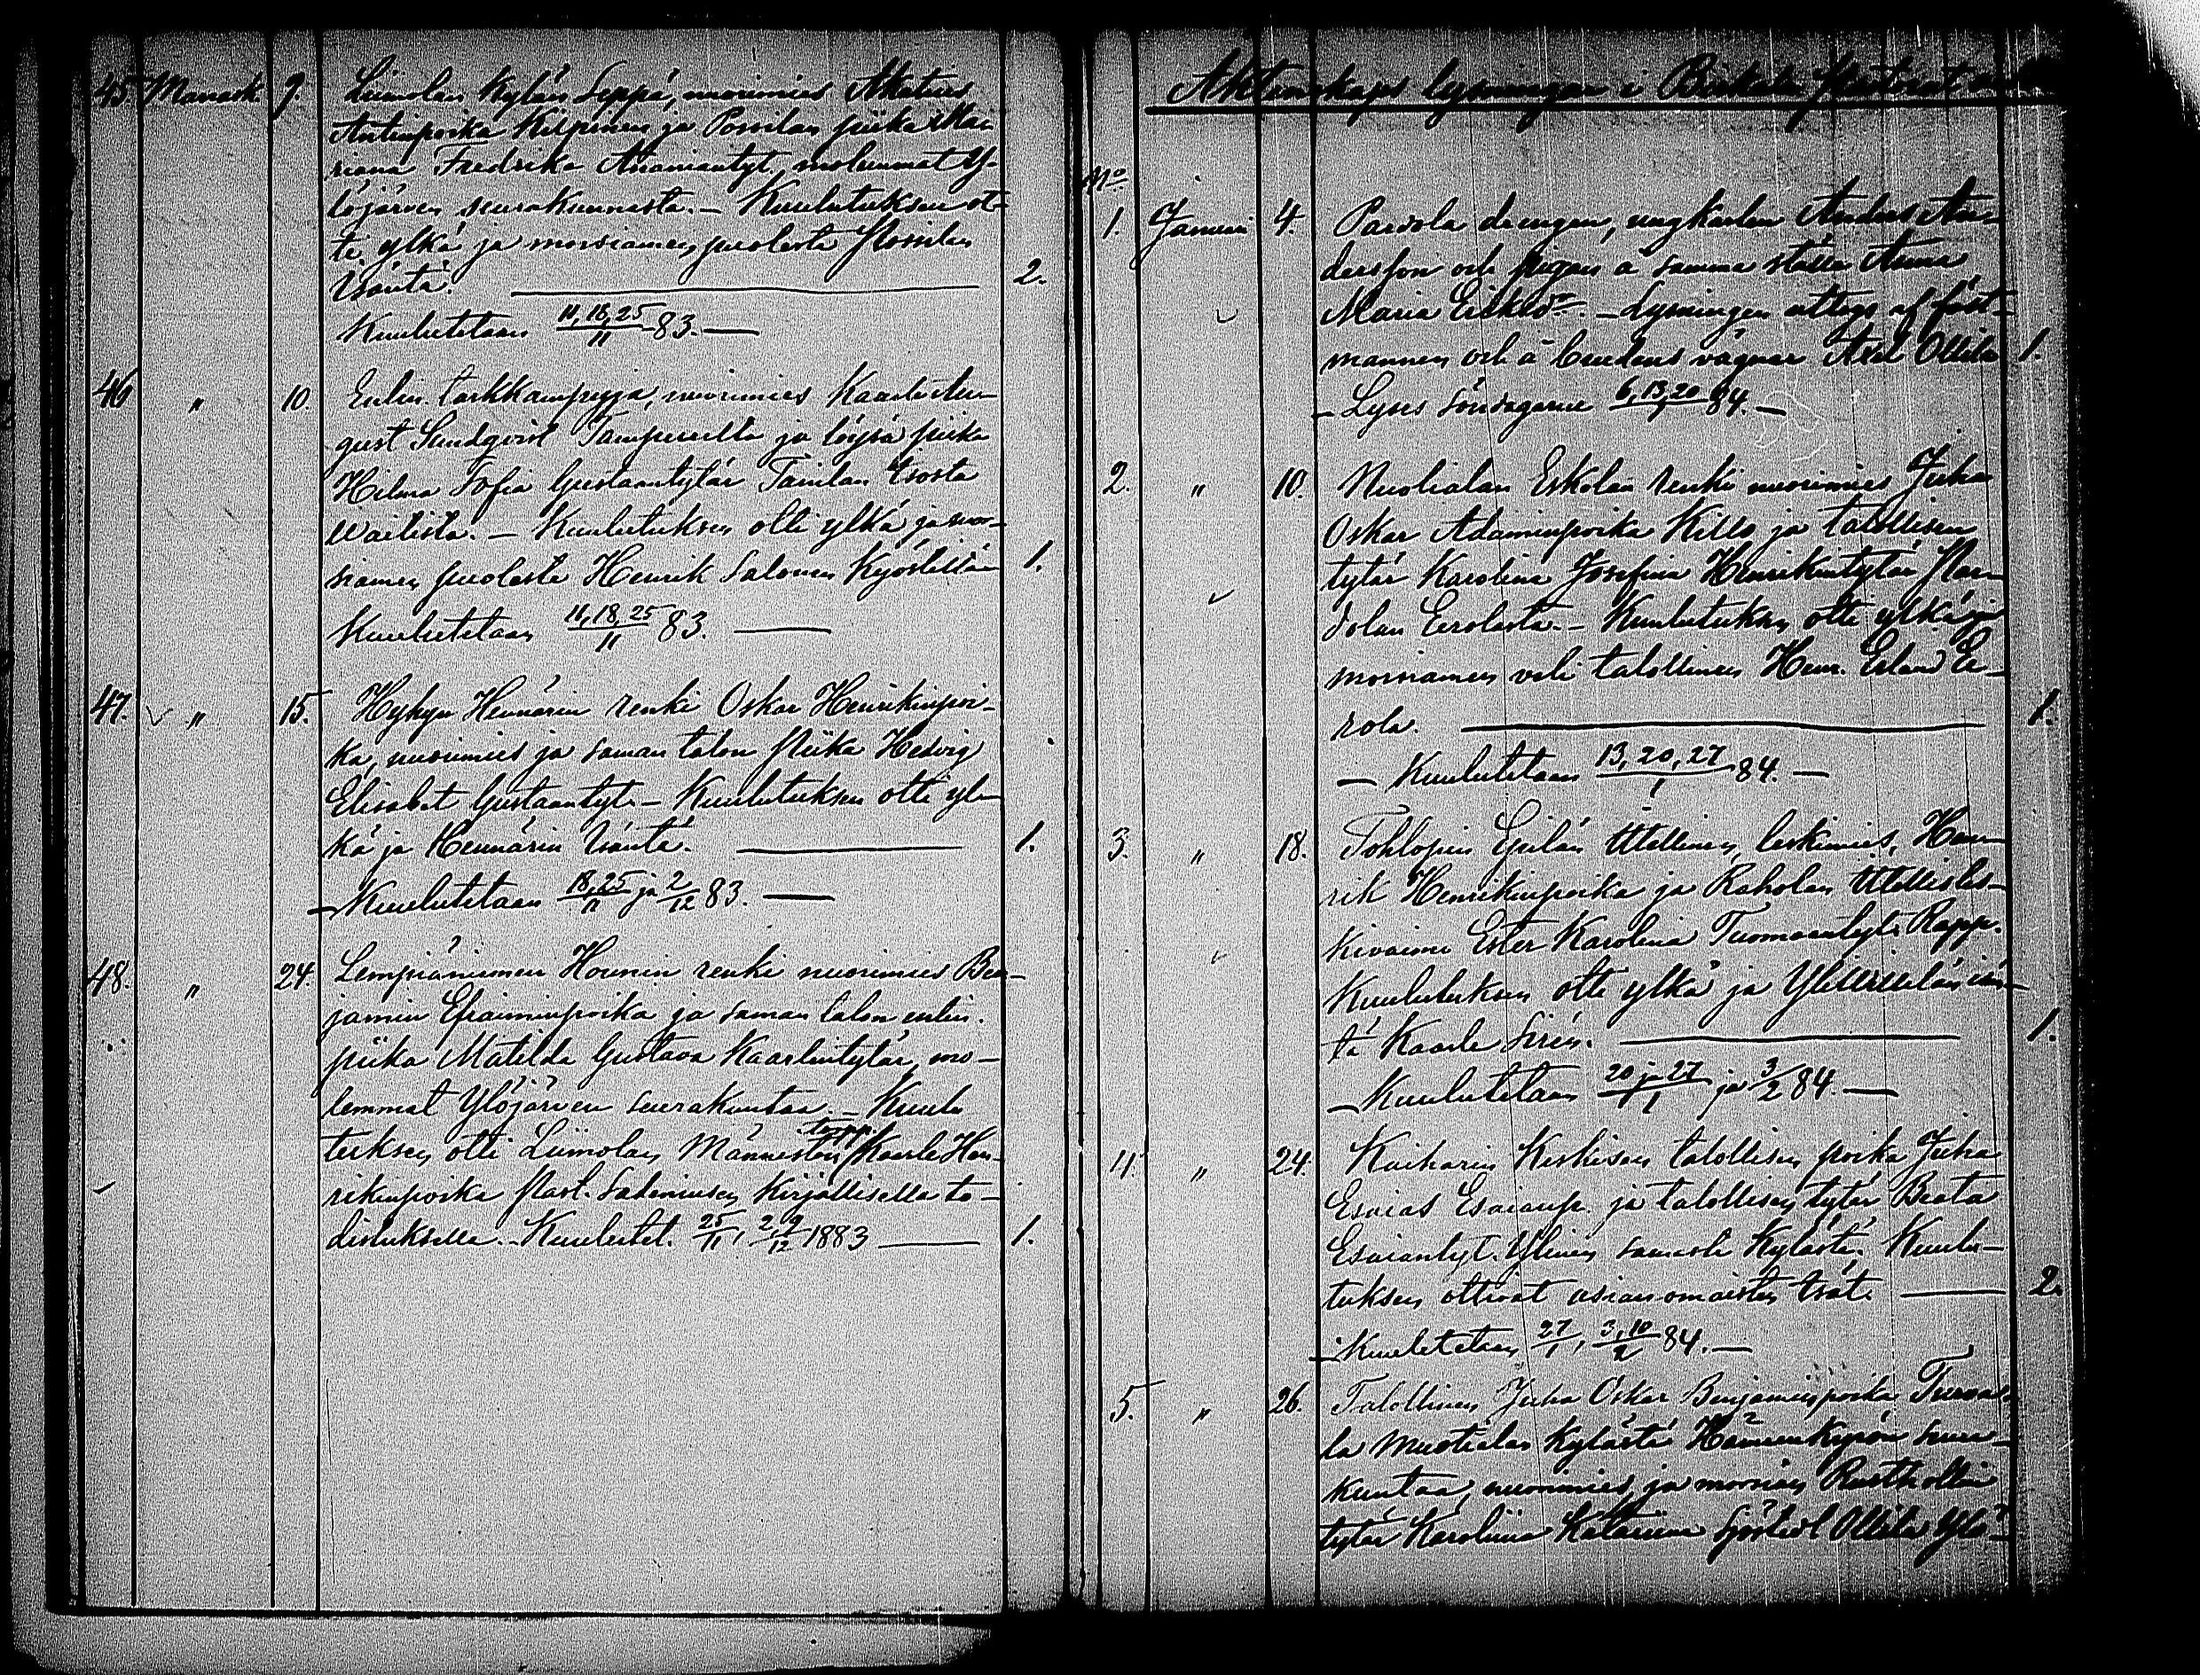 45 Marrask. 9. Liimolan Kylän Seppä, nuorimies Akatius
Antinpoika Kilpinen ja Possilan piika Ma-
riana Fredrika Ananiantyt, molemmat Y-
löjärven seurakunnasta. – Kuulutuksen ot-
ti ylkä ja morsiamen puolesta Possilan
Isäntä. 2.
Kuulutetaan 11,18,25/11 83. –
46 " 10. Entin. tarkkampuja, nuorimies Kaarle Au-
gust Sundqvist Tampereelta ja löysä piika
Hilma Sofia Gustaantytär Tainilan Isosta
Waitista. – Kuulutuksen otti ylkä ja mor-
siamen puolesta Henrik Salonen Kyöstillän 1.
Kuulutetaan 11,18,25/11 83. –
47. " 15. Hyhyn Hennärin renki Oskar Henrikinpoi-
ka, nuorimies ja saman talon piika Hedvig
Elisabet Gustaantyt. – Kuulutuksen otti yl-
kä ja Hennärin Isäntä. 1.
– Kuulutetaan 18,25/11 ja 2/12 83. –
48. " 24. Lempiäniemen Hounin renki nuorimies Ben-
jamin Efraiminpoika ja saman talon entin.
piika Matilda Gustava Kaarlentytär, mo-
lemmat Ylöjärven seurakuntaa. – Kuulu
tuksen otti Liimolan Männistön torpp. Kaarle Hen-
rikinpoika Past. Saleniusen Kirjallisella to-
distuksella. – Kuulutet. 25/11, 2,9/12 1883 – 1.
Äktenskaps lysningar i Birkala
No
1. Januari 4. Paavola drengen, ungkarlen Anders An-
dersson och pigan å samma ställe Anna
Maria Eriksdr. – Lysningen uttogs af fäst-
mannen och å brudens vägnar Axel Ollila 1.
– Lyses Söndagarne 6,13,20/1 84. –
2. " 10. Nuolialan Eskolan renki nuorimies Juha
Oskar Adaminpoika Killo ja talollisen
tytär Karolina Josefina Henrikintytär Par-
dolan Eerolasta. – Kuulutuksen otti ylkä ja
morsiamen veli talollinen Henr. Erland Ee-
rola. 1.
– Kuulutetaan 13,20,27/1 84. –
3. " 18. Tohlopin Epilän Itellinen, leskimies, Hen-
rik Henrikinpoika ja Raholan Itellisles-
kivaimo Ester Karolina Tuomaantyt. Rapp.
Kuulutuksen otti ylkä ja Ylillilän isän-
tä Kaarle Sirén. 1.
– Kuulutetaan 20 ja 27/1 ja 3/2 84. –
4. " 24. Kaiharin Keskisen talollisen poika Juha
Esaias Esaianp. ja talollisen tytär Beata
Esaiantyt. Ylinen samasta Kylästä. Kuulu-
tuksen ottivat asianomaisten Isät. 2.
– Kuulutetaan 27/1, 3,10/2 84. –
5. " 26. Talollinen Juha Oskar Benjaminpoika
la Kylästä Hämeenkyrön seura-
kuntaa, nuorimies, ja morsian Rusthollin
tytär Karoliina Katariina Sjöstedt Ollila Ylö-